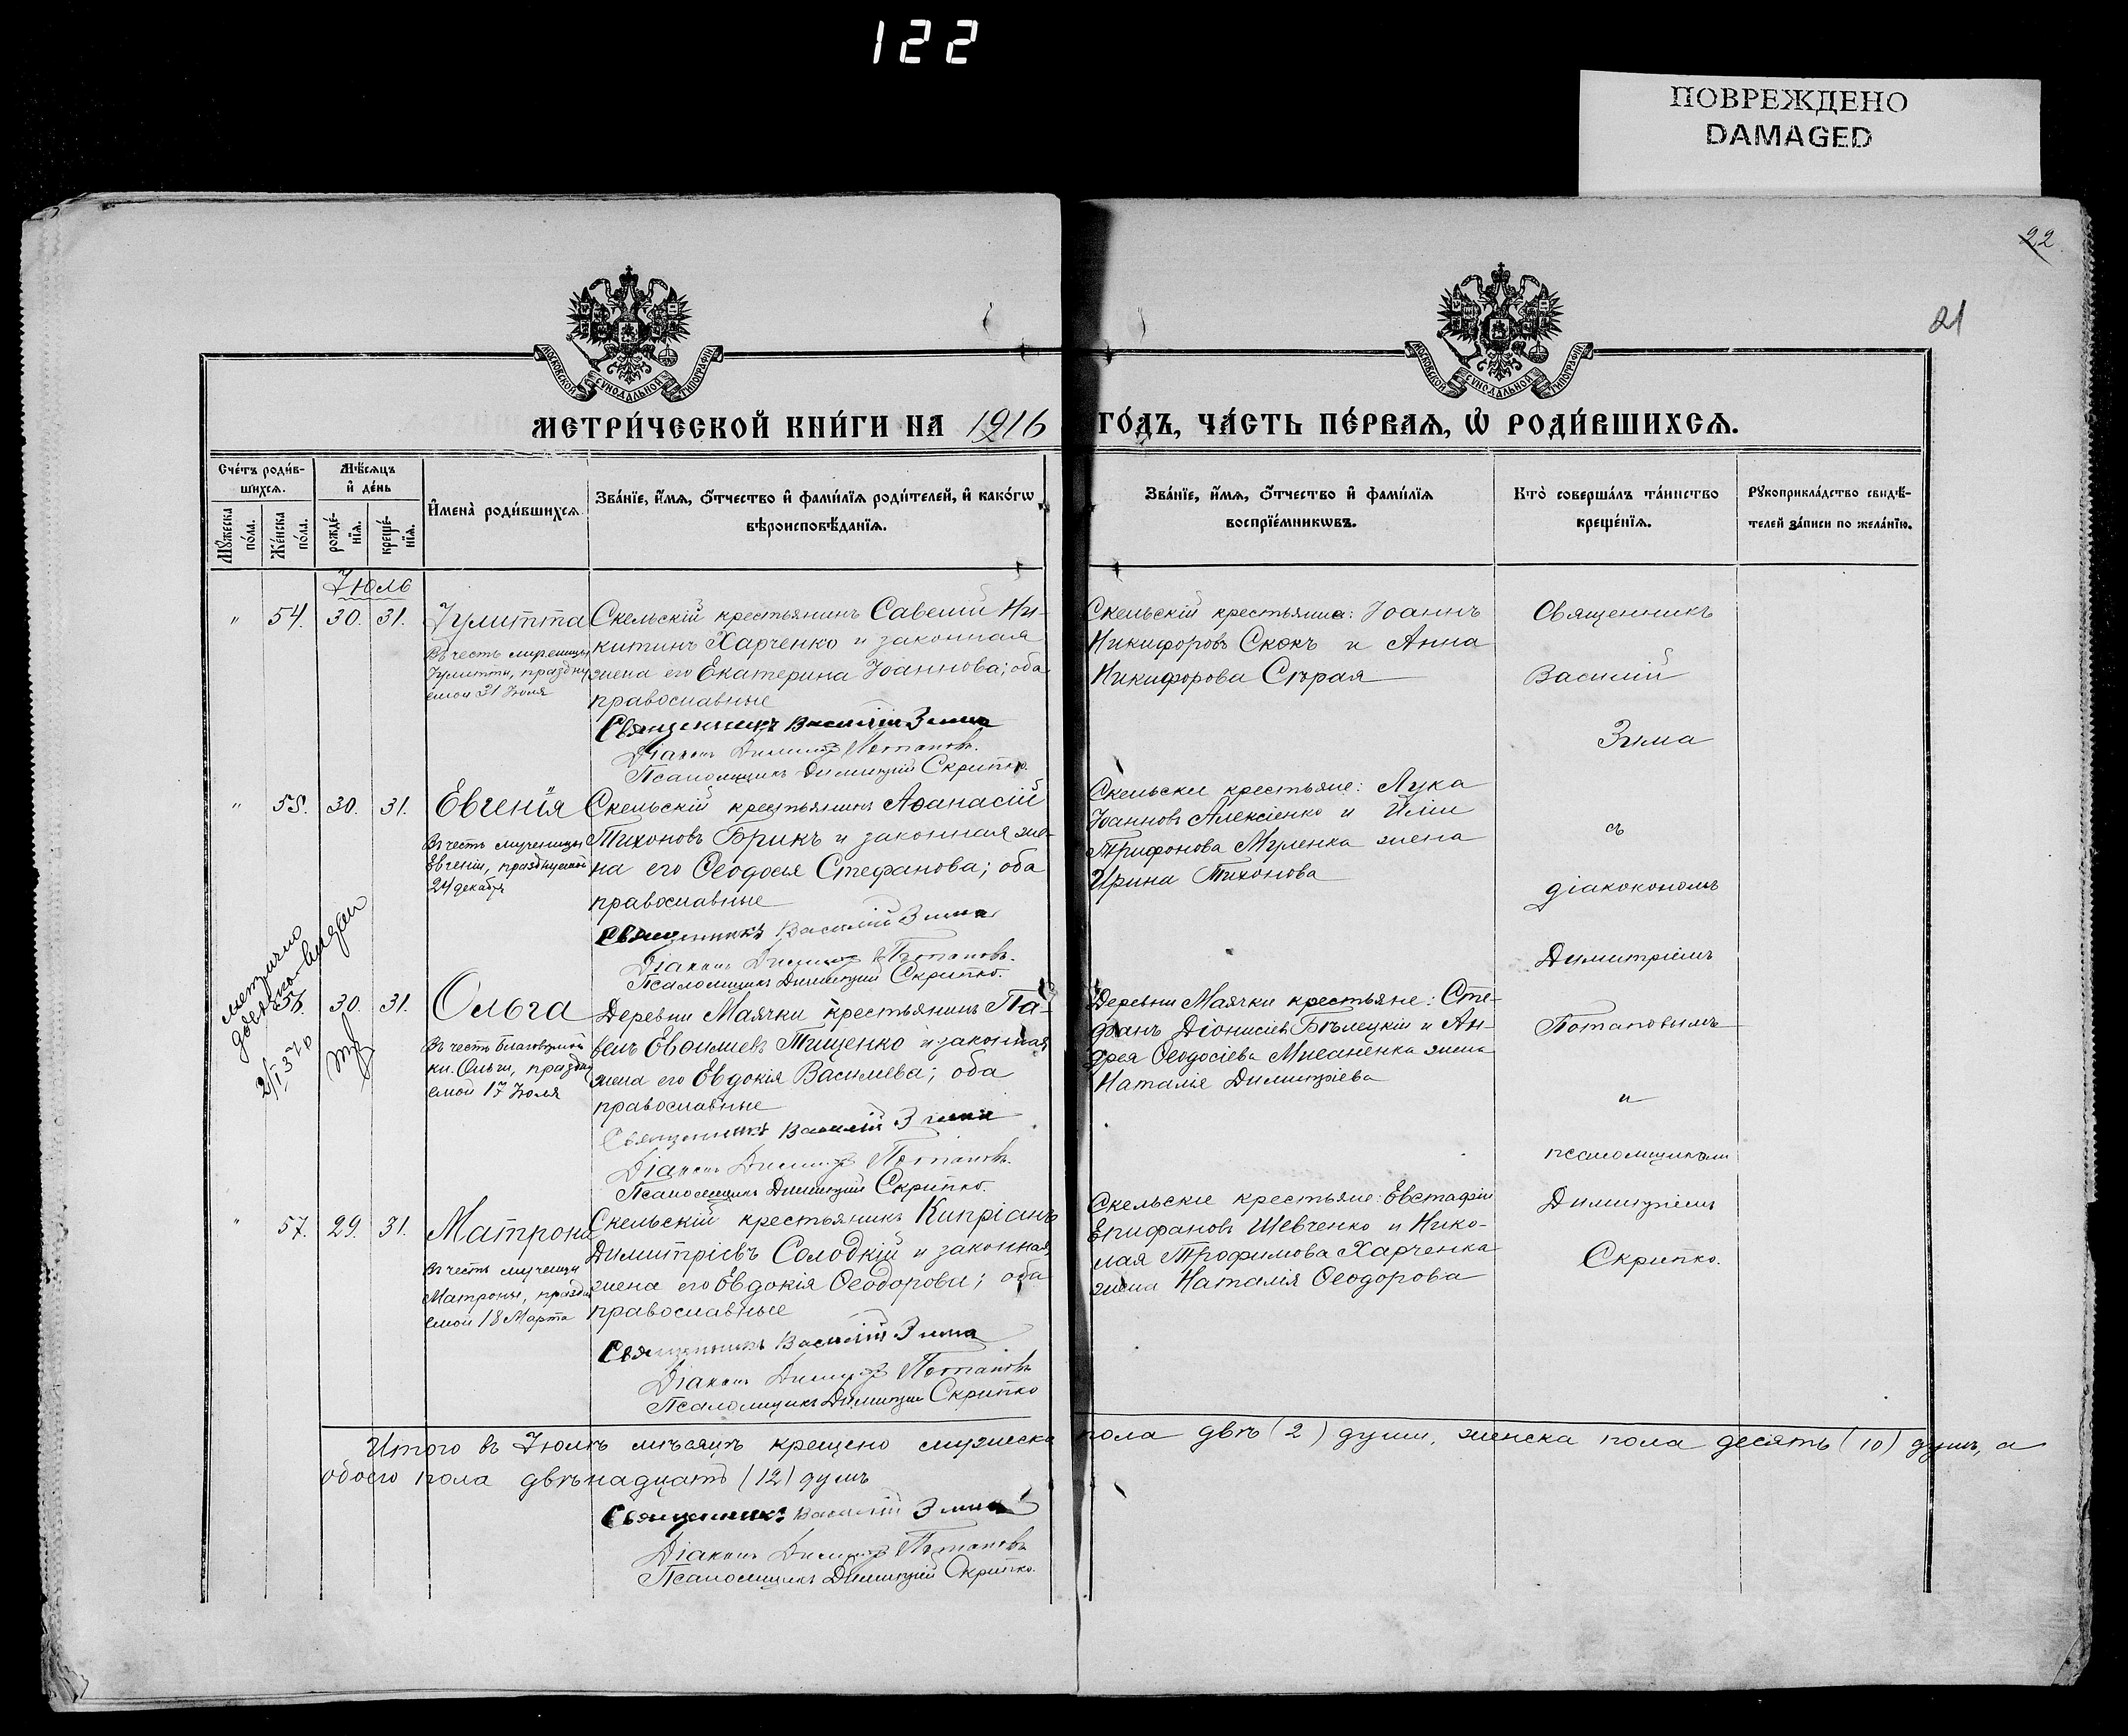 122
ПОВРЕЖДЕНО
DAMAGED
22
21
МОСКОВСКОЙ СѴНОДАЛЬНОЙ ТИПОГРАФІИ
МОСКОВСКОЙ СѴНОДАЛЬНОЙ ТИПОГРАФІИ
МЕТРИ́ЧЕСКОЙ КНИ́ГИ НА 1916 ГО́ДЪ, ЧА́СТЬ ПЕ́РВАѦ, Ѡ РОДИ́ВШИХСѦ.
Сче́тъ роди́в-
шихсѧ.
Мꙋ́жеска по́ла.
Же́нска по́ла.
Мѣ́сѧцъ
и҆ де́нь
рожде́-
нїѧ.
креще́-
нїѧ.
И҆мена̀ роди́вшихсѧ.
Зва́нїе, и҆́мѧ, ѻ҆́тчество и҆ фами́лїѧ роди́телей, и҆ како́гѡ
вѣроисповѣ́данїѧ.
Зва́нїе, и҆́мѧ, ѻ҆́тчество и҆ фами́лїѧ
воспрїе́мникѡвъ.
Кто̀ соверша́лъ та́инство
креще́нїѧ.
Рꙋкоприкла́дство свидѣ́-
телей за́писи по жела́нїю.
Іюль
" 54. 30. 31. Іулитта
Въ честь мученицы
Іулитты, праздну
емой 31 Іюля
Скельскій крестьянинъ Савелій Ни-
китинъ Харченко и законная
жена его Екатерина Іоаннова; оба
православные
Священникъ Василій Зима
Діаконъ Димитрій Потаповъ.
Псаломщикъ Димитрій Скрипко.
Скельскій крестьяне: Іоаннъ
Никифоровъ Скокъ и Анна
Никифорова Сѣрая
Священникъ
Василій
Зима
" 55. 30. 31. Евгенія
Въ честь мученицы
Евгеніи, празднуемой
24 декабря
Скельскій крестьянинъ Аѳанасій
Тихоновъ Брикъ и законная же-
на его Ѳеодосія Стефанова; оба
православные
Священникъ Василій Зима
Діаконъ Димитрій Потаповъ.
Псаломщикъ Димитрій Скрипко.
Скельскіе крестьяне: Лука
Іоанновъ Алексіенко и Иліи
Трифонова Муленка жена
Ирина Тихонова
съ
діакономъ
Димитріемъ
метрично
довідка видан
2/I 37 р
56. 30. 31. Ольга
Въ честь благовѣрной
кн. Ольги, праздну
емой 17 Іюля
Деревни Маячки крестьянинъ Па-
велъ Евѳиміевъ Тищенко и законная
жена его Евдокія Васильева; оба
православные
Священникъ Василій Зима
Діаконъ Димитрій Потаповъ.
Псаломщикъ Димитрій Скрипко.
Деревни Маячки крестьяне: Сте-
фанъ Діонисіевъ Бѣлецкій и Ан-
дрея Ѳеодосіева жена
Наталія Димитріева
Потаповымъ
и
псаломщикомъ
" 57. 29. 31. Матрона
Въ честь мученицы
Матроны, праздну
емой 18 Марта
Скельскій крестьянинъ Кипріанъ
Димитріевъ Солодкій и законная
жена его Евдокія Ѳеодорова; оба
православные
Священникъ Василій Зима
Діаконъ Димитрій Потаповъ
Псаломщикъ Димитрій Скрипко
Скельскіе крестьяне: Евстафій
Епифановъ Шевченко и Нико-
лая Трофимова Харченка
жена Наталія Ѳеодорова
Димитріемъ
Скрипко.
Итого въ Іюлѣ мѣсяцѣ крещено мужеска пола двѣ (2) души, женска пола десять (10) душъ, а
обоего пола двѣнадцать (12) душъ
Священникъ Василій Зима
Діаконъ Димитрій Потаповъ
Псаломщикъ Димитрій Скрипко.